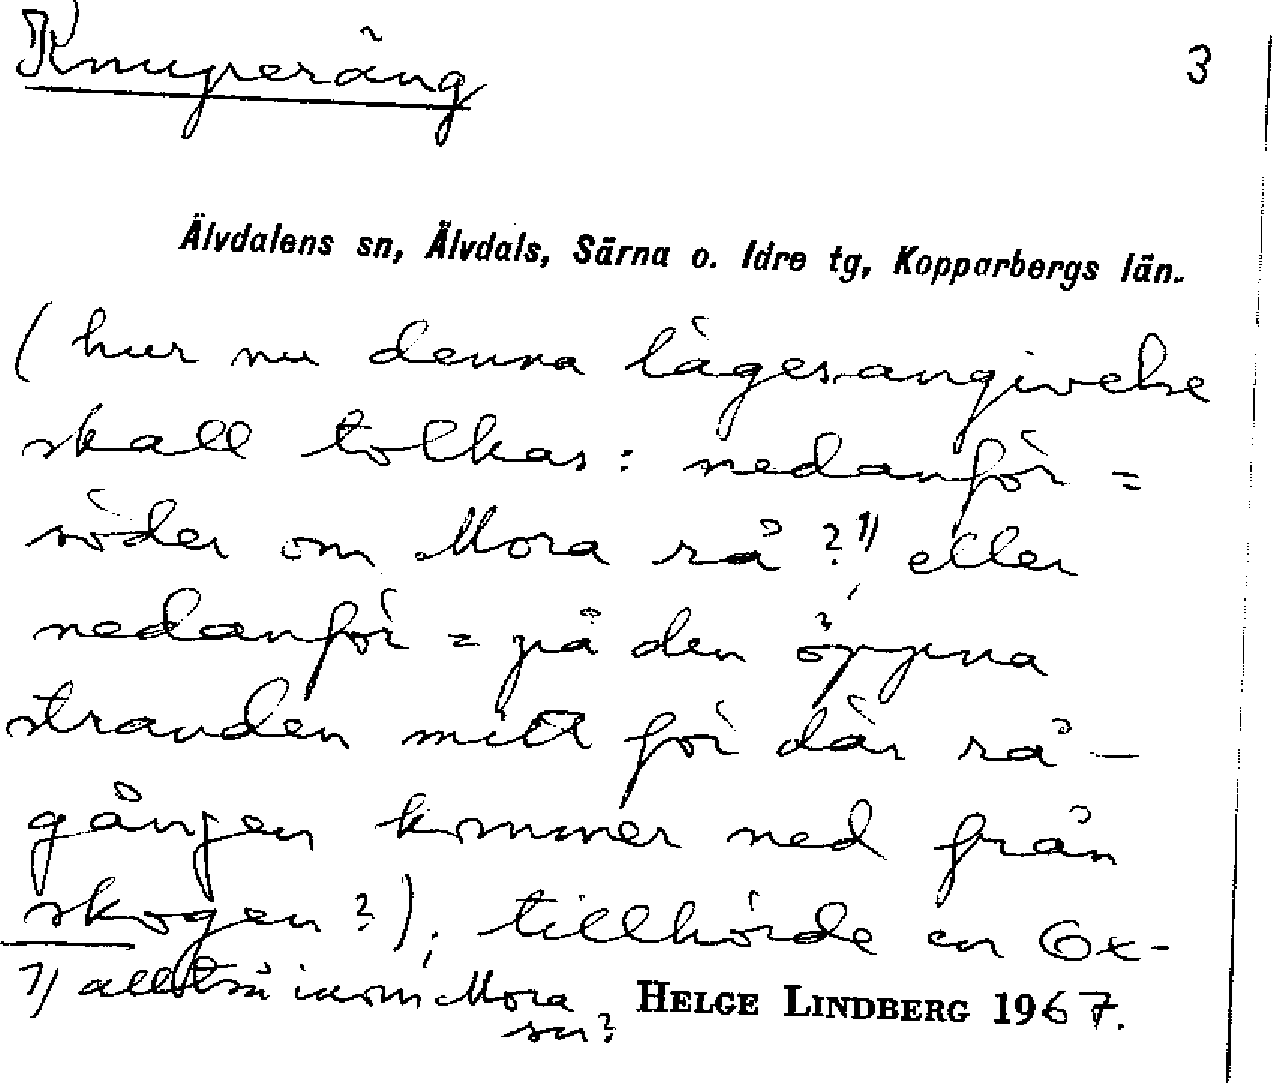 Knuperäng
3
Älvdalens sn, Älvdals, Särna o. Idre tg, Kopparbergs län.
(hur nu denna lägesangivelse
skall tolkas: nedanför =
söder om Mora rå?¹⁾, eller
nedanför = på den öppna
stranden mitt för där rå-
gången kommer ned från
skogen?); tillhörde en Ox-
1) alltså inom Mora
sn?
HELGE LINDBERG 1967.